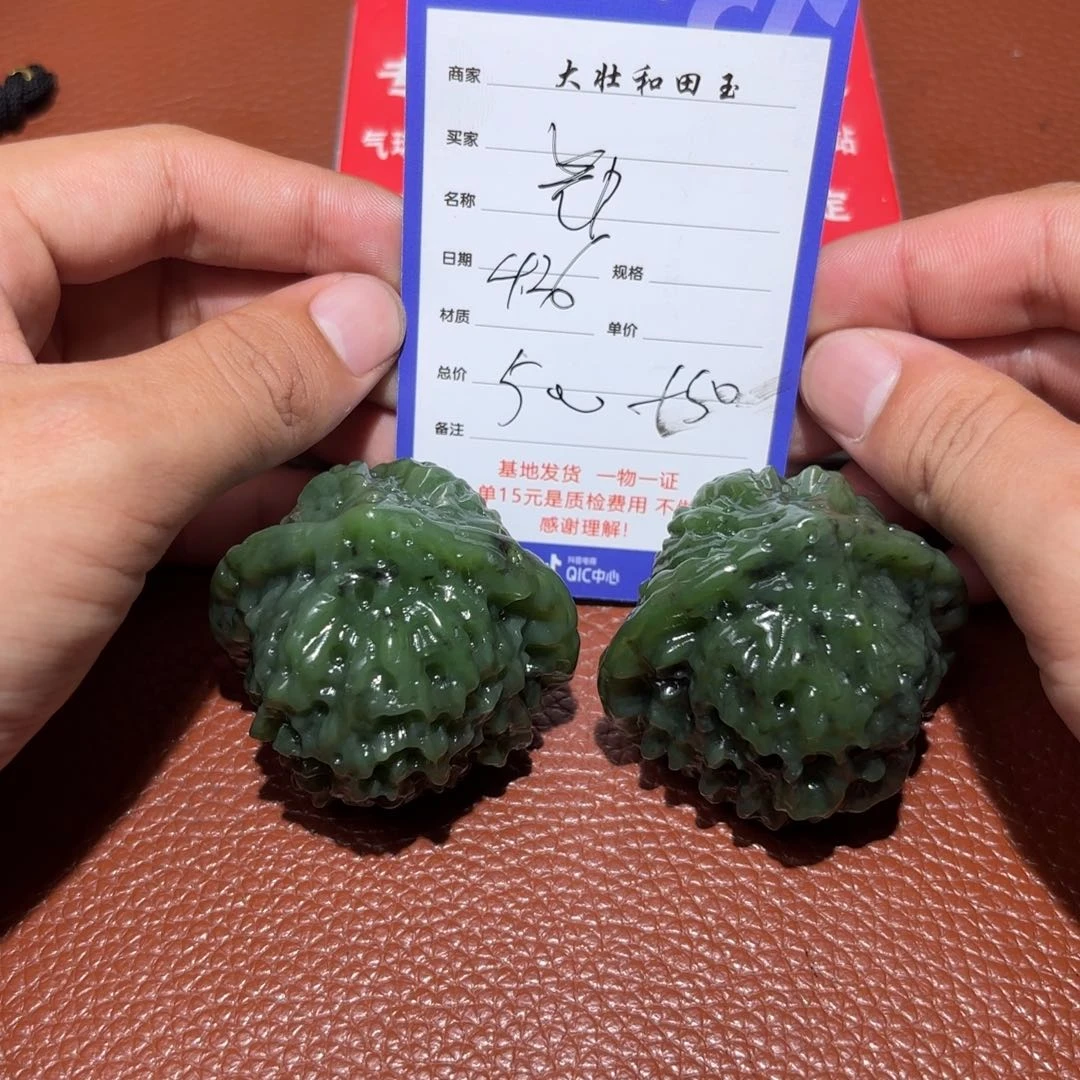 商家 大壮和田玉
买家
名称
日期 4.26 规格
材质 单价
总价
备注
基地发货 一物一证
单15元是质检费用 不
感谢理解!
抖音电商
QIC中心
气
站
定